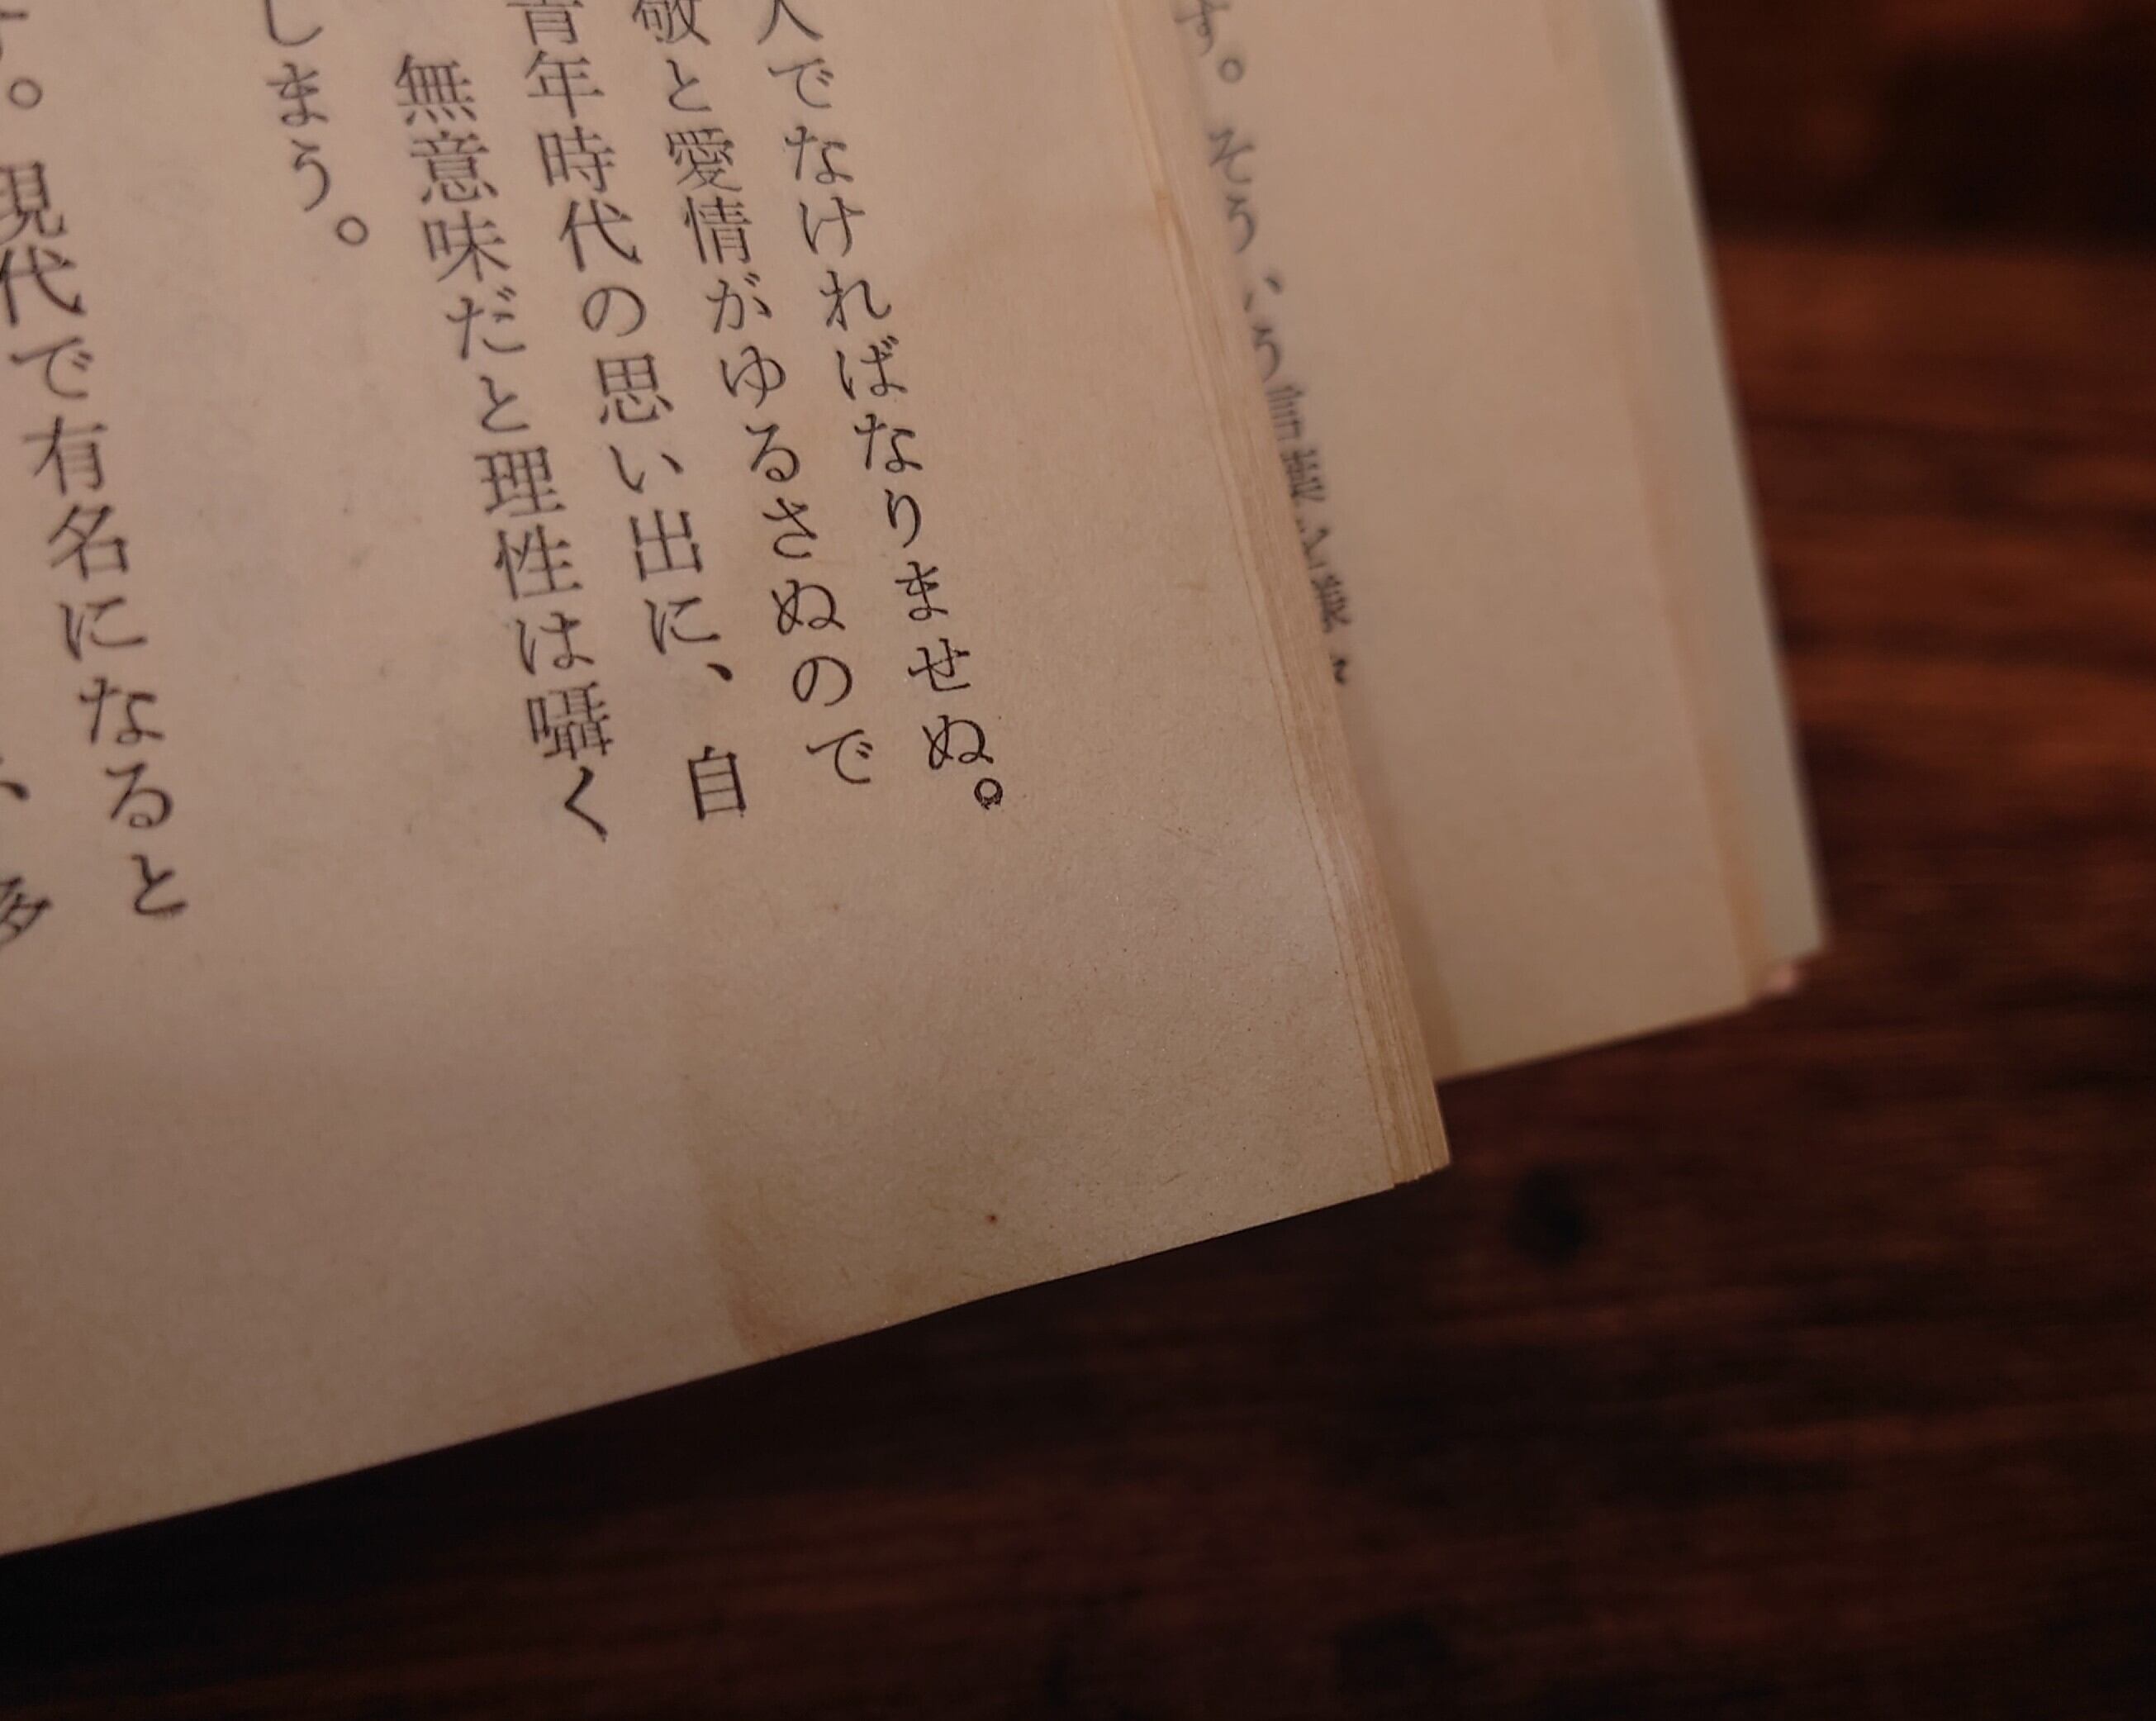 す。そう
人でなければなりませぬ。
敬と愛情がゆるさぬので
青年時代の思い出に、自
無意味だと理性は囁く
しまう。
現代で有名になると
、多